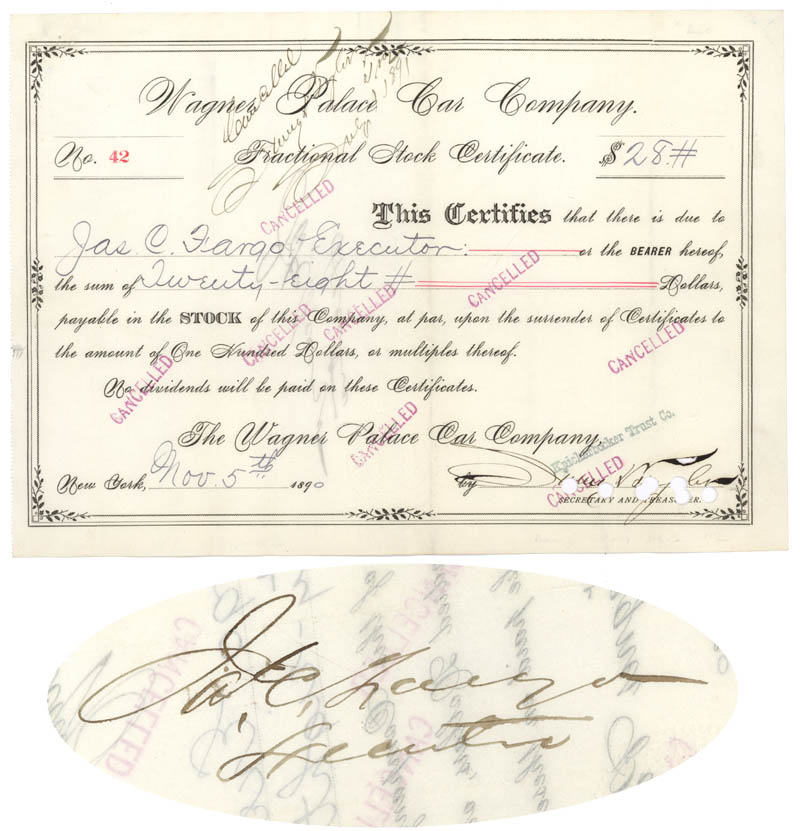 Cancelled
1891
Wagner Palace Car Company.
No. 42 Fractional Stock Certificate. $28.#
CANCELLED
This Certifies that there is due to
Jas. C. Fargo Executor: or the BEARER hereof,
CANCELLED
the sum of Twenty-Eight # Dollars,
CANCELLED
payable in the STOCK of this Company, at par, upon the surrender of Certificates to
CANCELLED
CANCELLED
the amount of One Hundred Dollars, or multiples thereof.
CANCELLED
No dividends will be paid on these Certificates.
CANCELLED
The Wagner Palace Car Company,
Knickerbocker Trust Co.
CANCELLED
New York, Nov. 5th 1890 by
SECRETARY AND TREASURER.
Jas. C. Fargo
Executor
CANCELLED
CANCELLED
CANCELLED